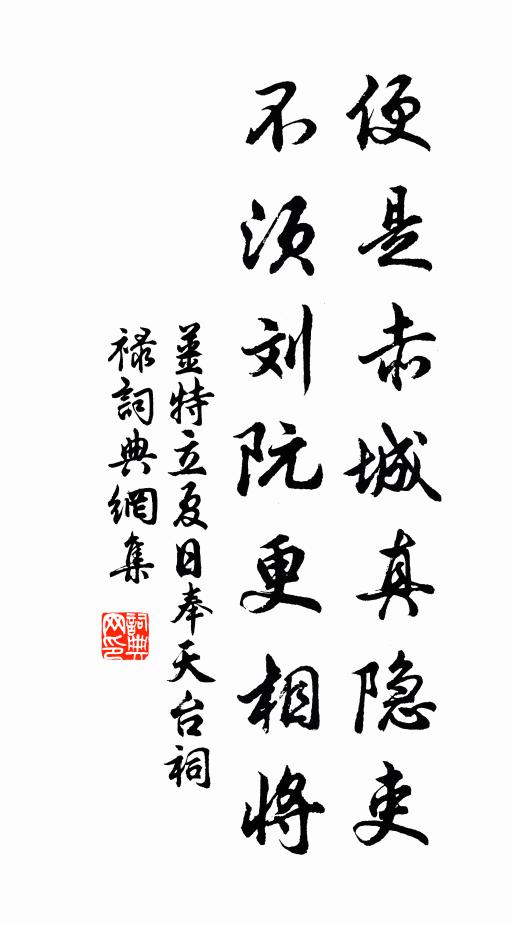 便是赤城真隐吏
不须刘阮更相将
姜特立夏日奉天台祠
禄詞典網集
詞典网印